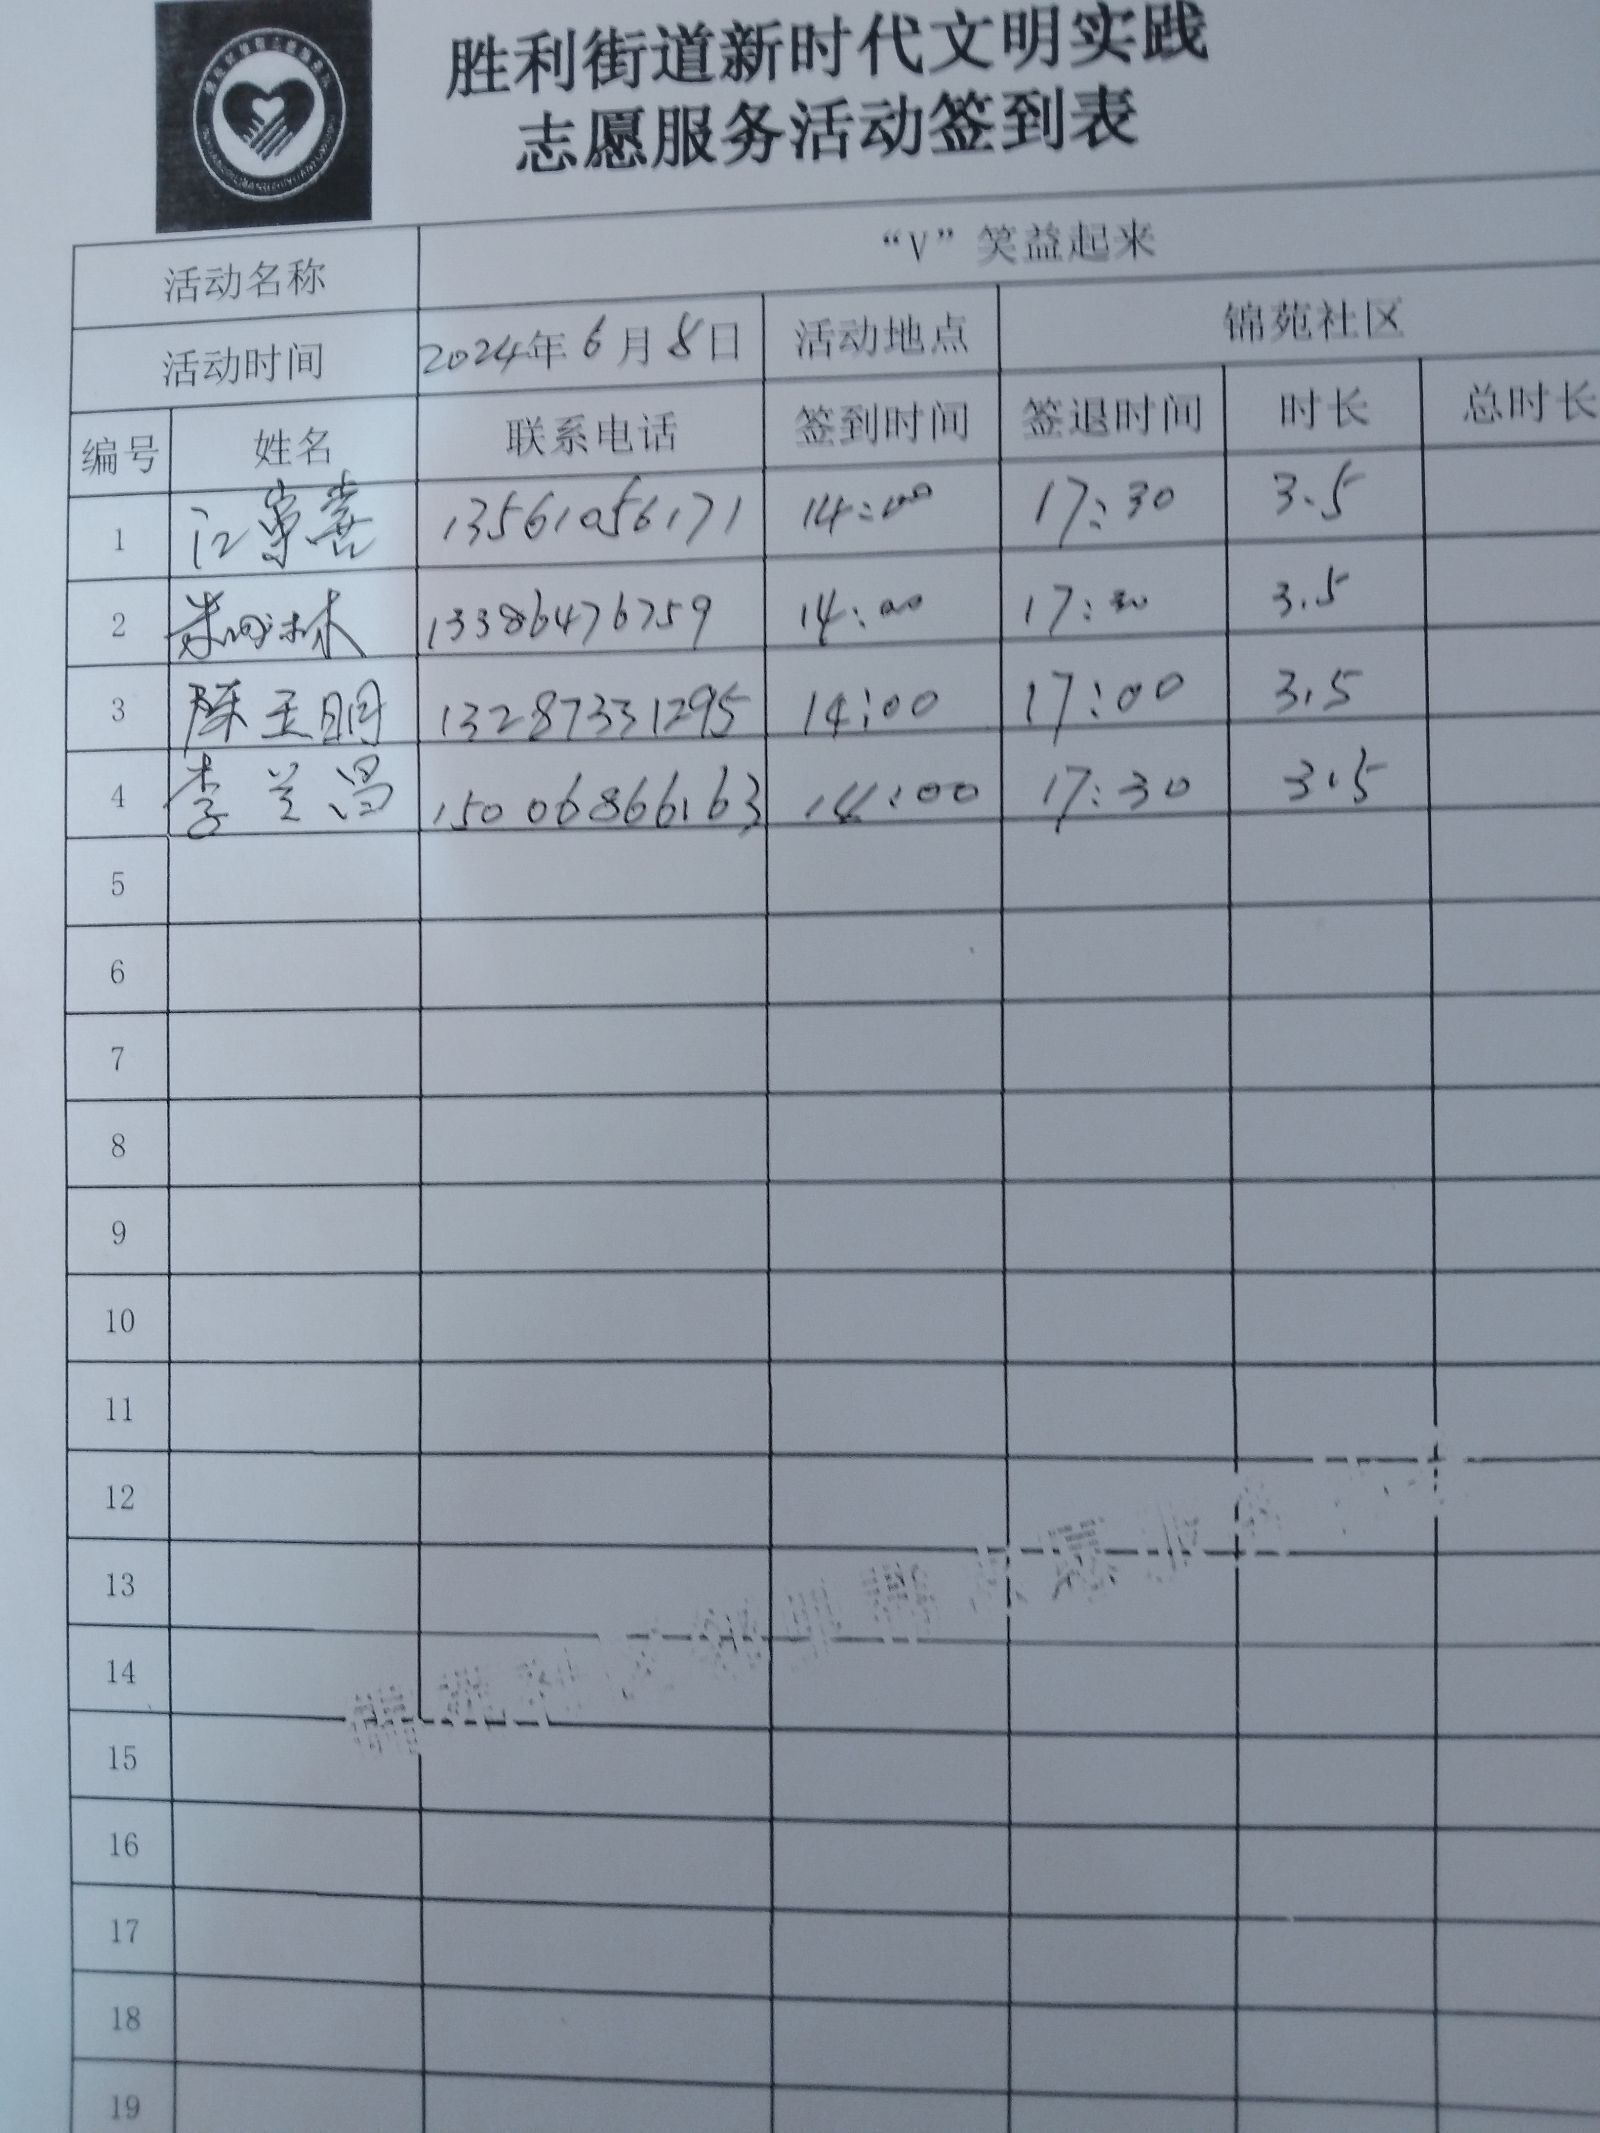 胜利街道新时代文明实践
志愿服务活动签到表
活动名称 “V”笑益起来
活动时间 2024年6月8日 活动地点 锦苑社区
编号 姓名 联系电话 签到时间 签退时间 时长 总时长
1 13561056171 14:00 17:30 3.5
2 13386476759 14:00 17:30 3.5
3 陈玉明 13287331295 14:00 17:00 3.5
4 李兰昌 15006866163 14:00 17:30 3.5
5
6
7
8
9
10
11
12
13
14
15
16
17
18
19